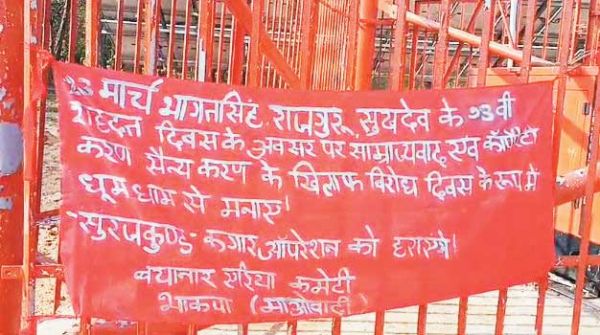 23 मार्च भगतसिंह, राजगुरू, सुखदेव के 93 वी
शहादत दिवस के अवसर पर साम्राज्यवाद एवं कॉर्पोरेटी
करण सैन्य करण के खिलाफ विरोध दिवस के रूप मे
धुमधाम से मनाए!
-सुरजकुण्ड- कगार ऑपरेशन को हराए!
बयानार एरिया कमेटी
भाकपा (माओवादी)